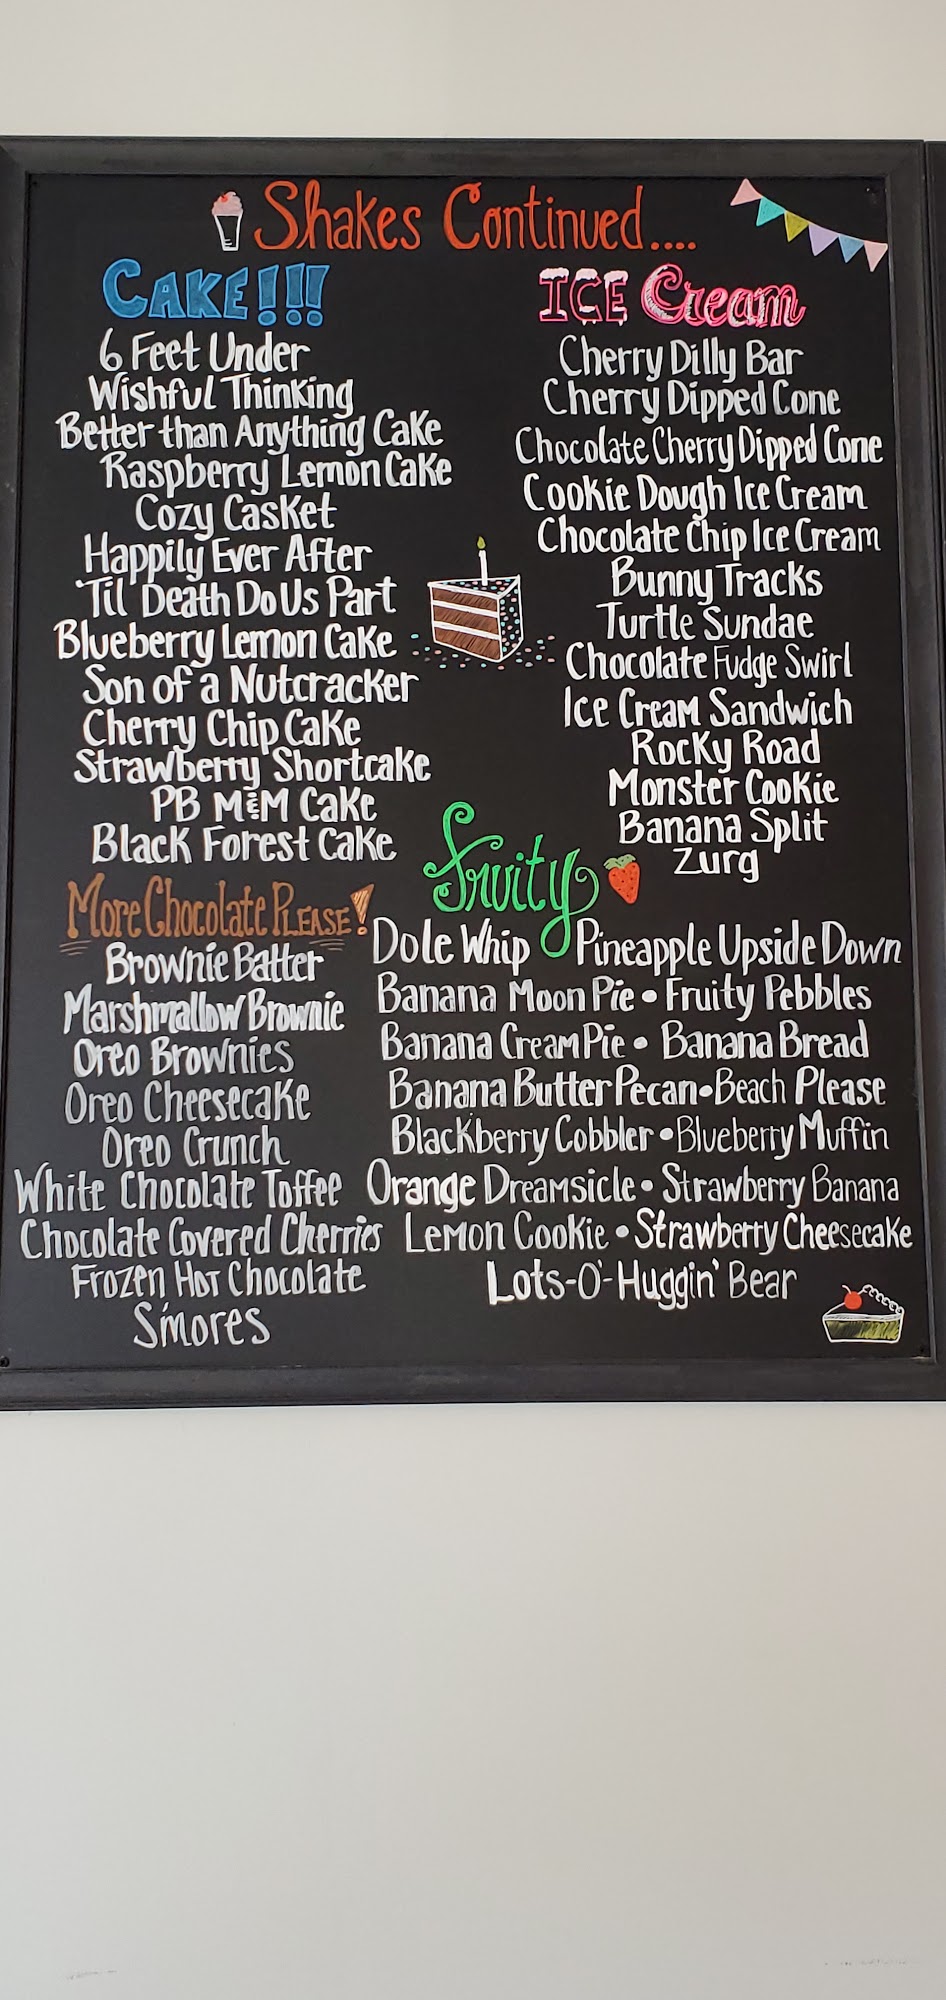 Shakes Continued....
CAKE!!!
6 Feet Under
Wishful Thinking
Better than Anything Cake
Raspberry Lemon Cake
Cozy Casket
Happily Ever After
'Til Death Do Us Part
Blueberry Lemon Cake
Son of a Nutcracker
Cherry Chip Cake
Strawberry Shortcake
PB M&M Cake
Black Forest Cake
More Chocolate Please!
Brownie Batter
Marshmallow Brownie
Oreo Brownies
Oreo Cheesecake
Oreo Crunch
White Chocolate Toffee
Chocolate Covered Cherries
Frozen Hot Chocolate
S'mores
ICE Cream
Cherry Dilly Bar
Cherry Dipped Cone
Chocolate Cherry Dipped Cone
Cookie Dough Ice Cream
Chocolate Chip Ice Cream
Bunny Tracks
Turtle Sundae
Chocolate Fudge Swirl
Ice Cream Sandwich
Rocky Road
Monster Cookie
Banana Split
Zurg
Fruity
Dole Whip Pineapple Upside Down
Banana Moon Pie • Fruity Pebbles
Banana Cream Pie • Banana Bread
Banana Butter Pecan • Beach Please
Blackberry Cobbler • Blueberry Muffin
Orange Dreamsicle • Strawberry Banana
Lemon Cookie • Strawberry Cheesecake
Lots-O'-Huggin' Bear